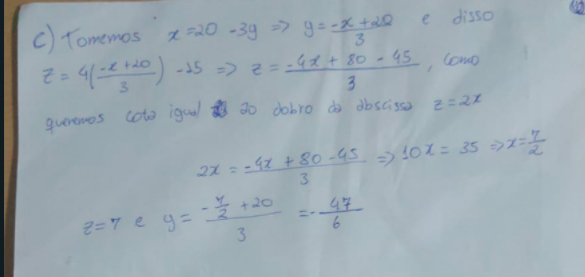 c) Tomemos x=20-3y => y = (-x+20)/3 e disso
z = 4((-x+20)/3) - 15 => z = (-4x+80-45)/3, como
queremos cota igual ao dobro da abscissa z=2x
2x = (-4x+80-45)/3 => 10x = 35 => x = 7/2
z=7 e y = (-7/2+20)/3 = -47/6